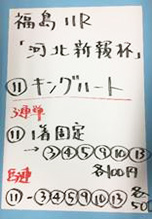 福島11R
「河北新報杯」
⑪キングハート
3連単
⑪1着固定
→③④⑤⑨⑩⑬
各100円
馬連
⑪-③④⑤⑨⑩⑬
各500